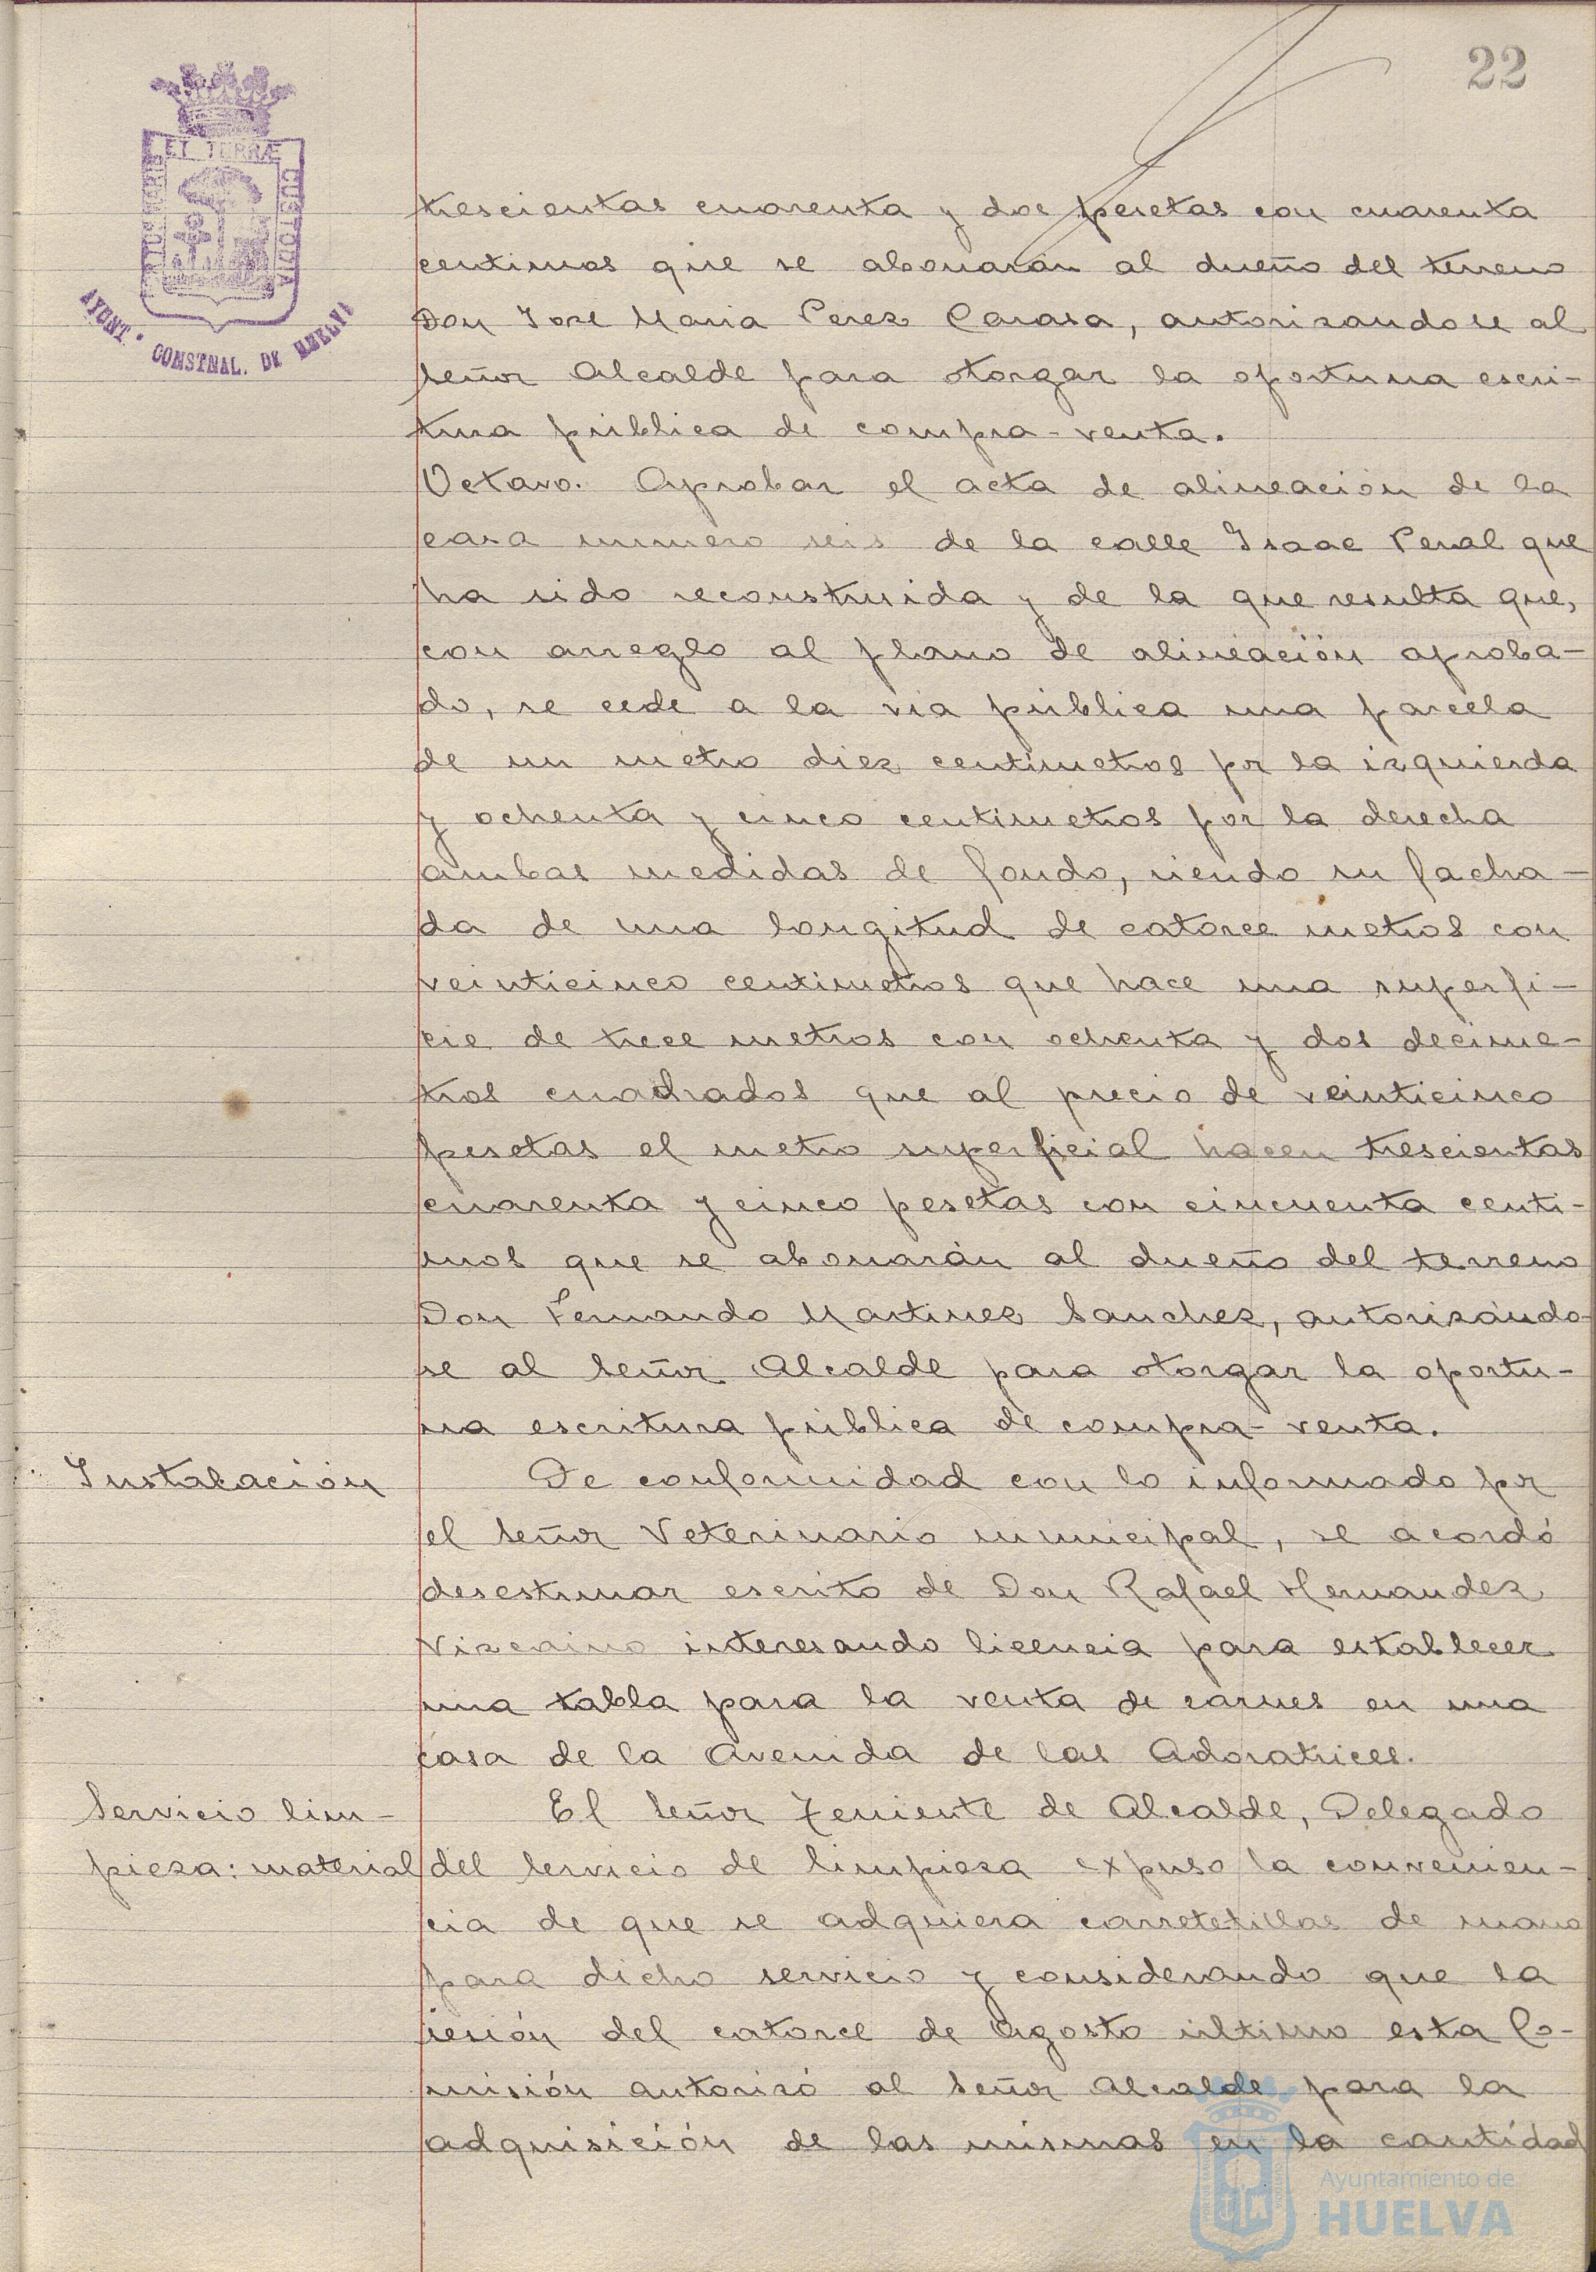 22
ET TERRÆ
PORTUS MARIS
CUSTODIA
AYUNT.º CONSTNAL. DE HUELVA
trescientas cuarenta y dos pesetas con cuarenta
centimos que se abonarán al dueño del terreno
Don Jose Maria Perez Carasa, autorizandose al
Señor Alcalde para otorgar la oportuna escri-
tura pública de compra-venta.
Octavo. Aprobar el acta de alineación de la
casa numero seis de la calle Isaac Peral que
ha sido reconstruida y de la que resulta que,
con arreglo al plano de alineación aproba-
do, se cede a la via pública una parcela
de un metro diez centimetros por la izquierda
y ochenta y cinco centimetros por la derecha
ambas medidas de fondo, siendo su facha-
da de una longitud de catorce metros con
veinticinco centimetros que hace una superfi-
cie de trece metros con ochenta y dos decime-
tros cuadrados que al precio de veinticinco
pesetas el metro superficial hacen trescientas
cuarenta y cinco pesetas con cincuenta centi-
mos que se abonarán al dueño del terreno
Don Fernando Martinez Sanchez, autorizándo-
se al Señor Alcalde para otorgar la oportu-
na escritura pública de compra-venta.
Instalación De conformidad con lo informado por
el Señor Veterinario municipal, se acordó
desestimar escrito de Don Rafael Hernandez
Vizcaino interesando licencia para establecer
una tabla para la venta de carnes en una
casa de la Avenida de las Adoratrices.
Servicio lim- El Señor Teniente de Alcalde, Delegado
pieza: material del Servicio de limpieza expuso la convenien-
cia de que se adquiera carretetillas de mano
para dicho servicio y considerando que la
sesión del catorce de Agosto último esta Co-
misión autorizó al Señor Alcalde para la
adquisición de las mismas en la cantidad
Ayuntamiento de
HUELVA